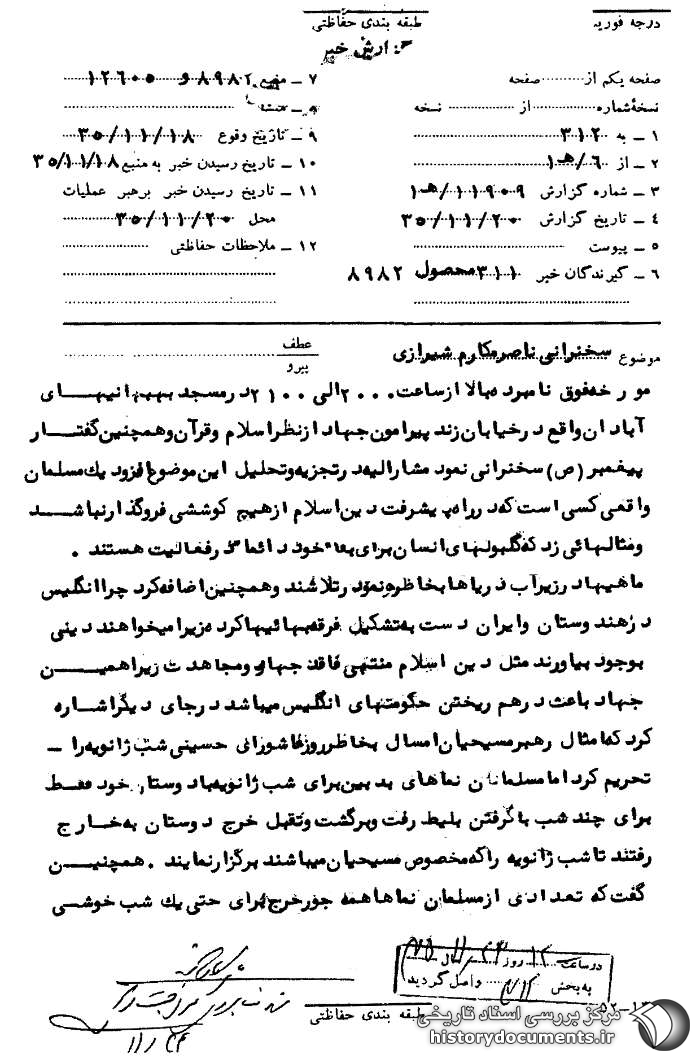 درجه فوریه
طبقه بندی حفاظتی
ارزش خبر
صفحه یکم از صفحه
نسخهٔ شماره از نسخه
۱ ـ به ۳۱۲
۲ ـ از ۶/هـ۱
۳ ـ شماره گزارش ۱۱۹۰۹/هـ۱
۴ ـ تاریخ گزارش ۳۵/۱۱/۲۰
۵ ـ پیوست
۶ ـ گیرندگان خبر ۳۱۱ محصول ۸۹۸۲
۷ ـ منبع ۸۹۸۲ و ۱۲۶۰۵
۸ ـ منشاء
۹ ـ تاریخ وقوع ۳۵/۱۱/۱۸
۱۰ ـ تاریخ رسیدن خبر به منبع ۳۵/۱۱/۱۸
۱۱ ـ تاریخ رسیدن خبر برهبر عملیات
محل ۳۵/۱۱/۲۰
۱۲ ـ ملاحظات حفاظتی
موضوع سخنرانی ناصر مکارم شیرازی
عطف
پیرو
مورخه فوق نامبرده بالا از ساعت ۲۰۰۰ الی ۲۱۰۰ در مسجد بهبهانیهای
آبادان واقع در خیابان زند پیرامون جهاد از نظر اسلام و قرآن و همچنین گفتار
پیغمبر (ص) سخنرانی نمود مشارالیه در تجزیه و تحلیل این موضوع افزود یك مسلمان
واقعی کسی است که در راه پیشرفت دین اسلام از هیچ کوششی فروگذار نباشد
و مثالهائی زد که گلبولهای انسان برای بقاء خود دائما در فعالیت هستند .
ماهیها در زیر آب دریاها بخاطر خود در تلاشند و همچنین اضافه کرد چرا انگلیس
در هندوستان و ایران دست به تشکیل فرقه بهائیها کرده زیرا میخواهند دینی
بوجود بیاورند مثل دین اسلام منتهی فاقد جهاد و مجاهدت زیرا همین
جهاد باعث درهم ریختن حکومتهای انگلیس میباشد در جای دیگر اشاره
کرد که امثال رهبر مسیحیان امسال بخاطر روز عاشورای حسینی شب ژانویه را ـ
تحریم کرد اما مسلمانان نماهای بدبین برای شب ژانویه با دوستان خود فقط
برای چند شب با گرفتن بلیط رفت و برگشت و تقبل خرج دوستان به خارج
رفتند تا شب ژانویه را که مخصوص مسیحیان میباشند برگزار نمایند . همچنین
گفت که تعدادی از مسلمان نماها همه جور خرج برای حتی یك شب خوشی
در ساعت ۱۲ روز سال
به بخش ۳۱۲ واصل گردید
طبقه بندی حفاظتی
مرکز بررسی اسناد تاریخی
historydocuments.ir